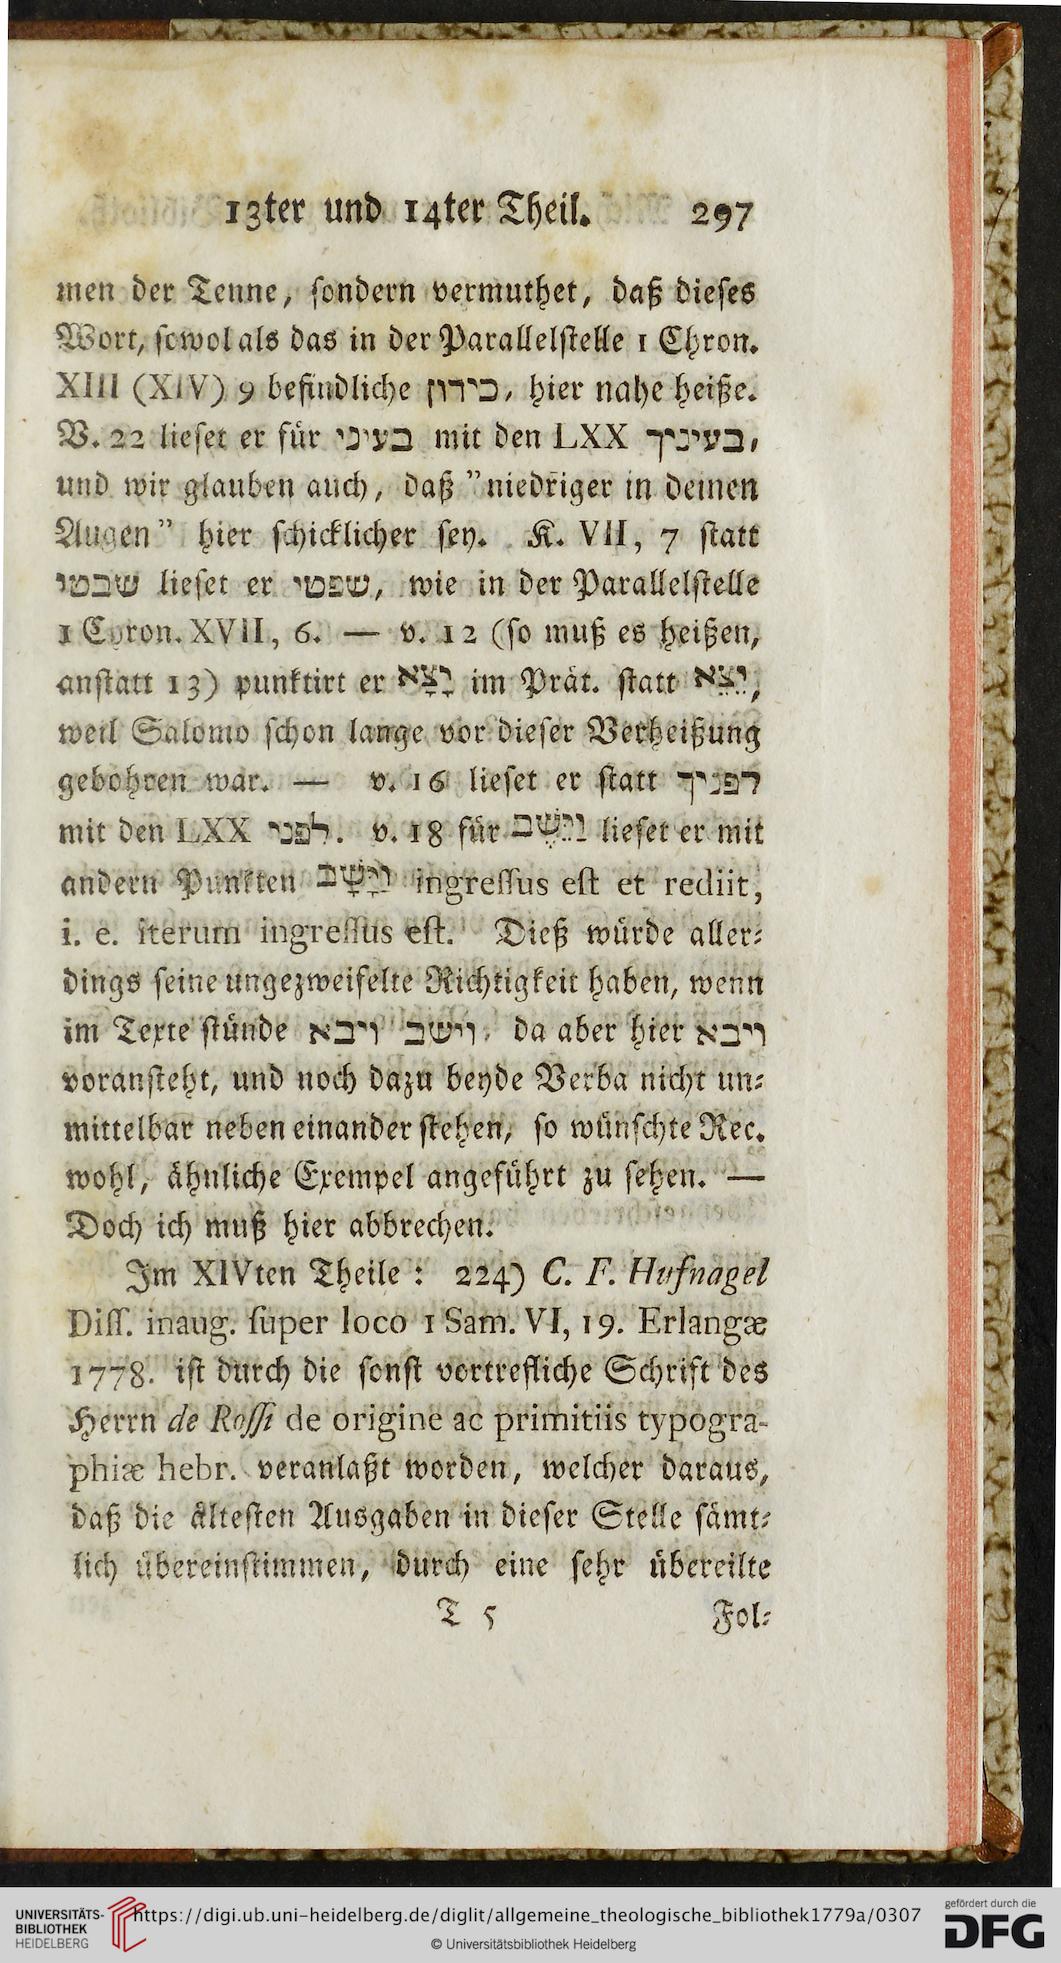 13ter und 14ter Theil. 297
men der Tenne, sondern vermuthet, daß dieses
Wort, sowol als das in der Parallelstelle 1 Chron.
XIII (XIV) 9 befindliche כידון, hier nahe heiße.
V. 22 lieset er für בעיני mit den LXX בעיניך,
und wir glauben auch, daß "niedriger in deinen
Augen" hier schicklicher sey. K. VII, 7 statt
שבטי lieset er שפטי, wie in der Parallelstelle
1 Chron. XVII, 6. — v. 12 (so muß es heißen,
anstatt 13) punktirt er יָצָא im Prät. statt יֵצֵא,
weil Salomo schon lange vor dieser Verheißung
gebohren war. — v. 16 lieset er statt לפניך
mit den LXX לפני. v. 18 für וַיֵּשֶׁב lieset er mit
andern Punkten וַיָּשָׁב ingressus est et rediit,
i. e. iterum ingressus est. Dieß würde aller-
dings seine ungezweifelte Richtigkeit haben, wenn
im Texte stünde וישב ויבא, da aber hier ויבא
voransteht, und noch dazu beyde Verba nicht un-
mittelbar neben einander stehen, so wünschte Rec.
wohl, ähnliche Exempel angeführt zu sehen. —
Doch ich muß hier abbrechen.
Im XIVten Theile: 224) C. F. Hufnagel
Diss. inaug. super loco 1 Sam. VI, 19. Erlangæ
1778. ist durch die sonst vortrefliche Schrift des
Herrn de Rossi de origine ac primitiis typogra-
phiæ hebr. veranlaßt worden, welcher daraus,
daß die ältesten Ausgaben in dieser Stelle sämt-
lich übereinstimmen, durch eine sehr übereilte
T 5 Fol-
UNIVERSITÄTS-
BIBLIOTHEK
HEIDELBERG
https://digi.ub.uni-heidelberg.de/diglit/allgemeine_theologische_bibliothek1779a/0307
© Universitätsbibliothek Heidelberg
gefördert durch die
DFG